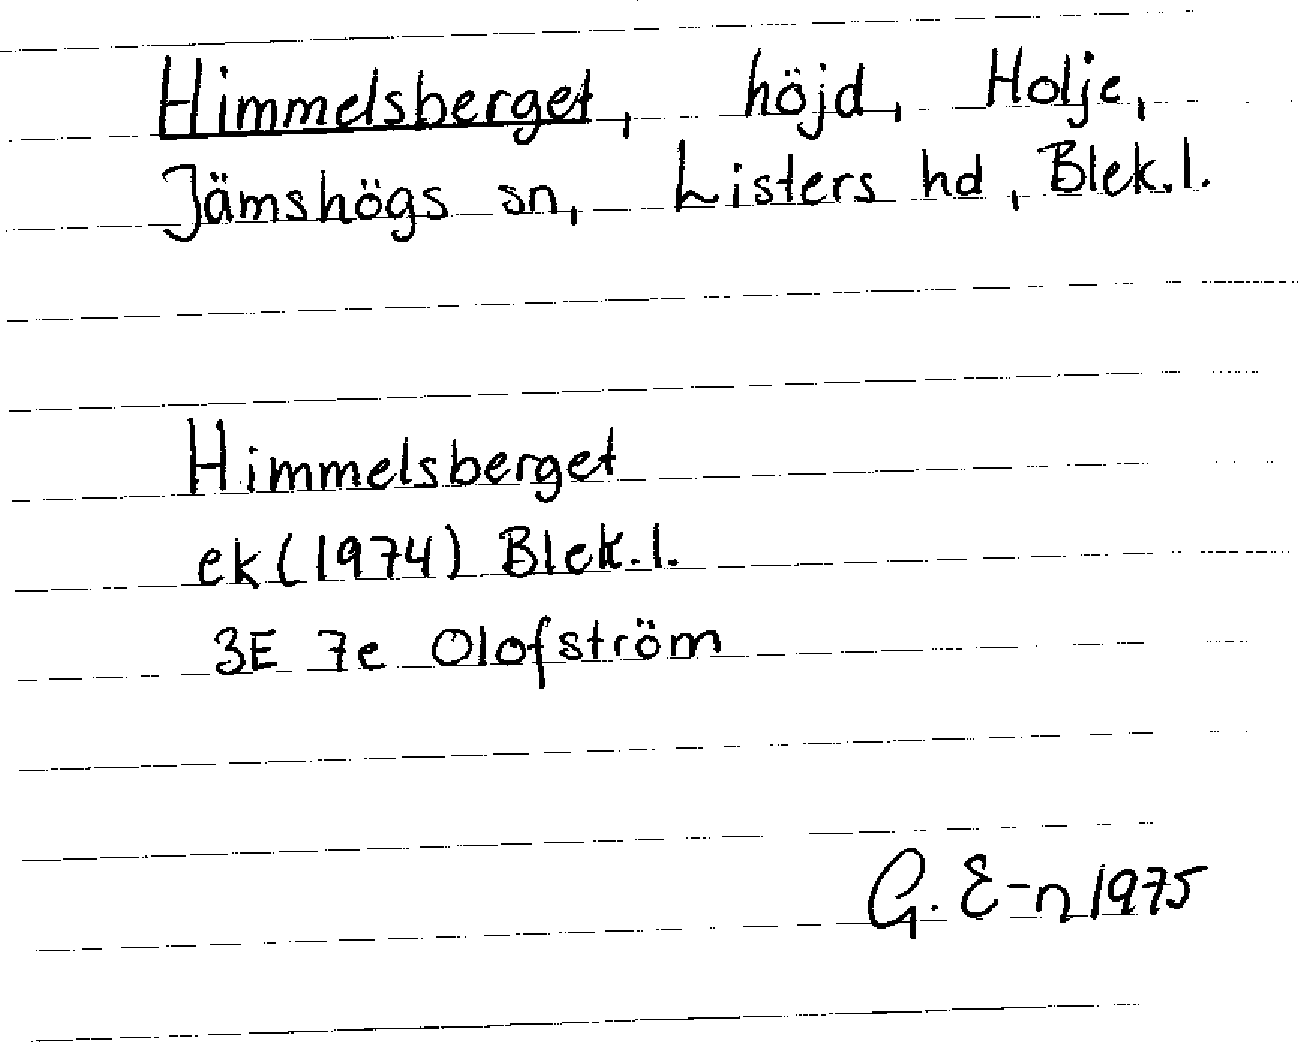 Himmelsberget, höjd, Holje,
Jämshögs sn, Listers hd, Blek.l.
Himmelsberget
ek (1974) Blek.l.
3E 7e Olofström
G. E-n 1975